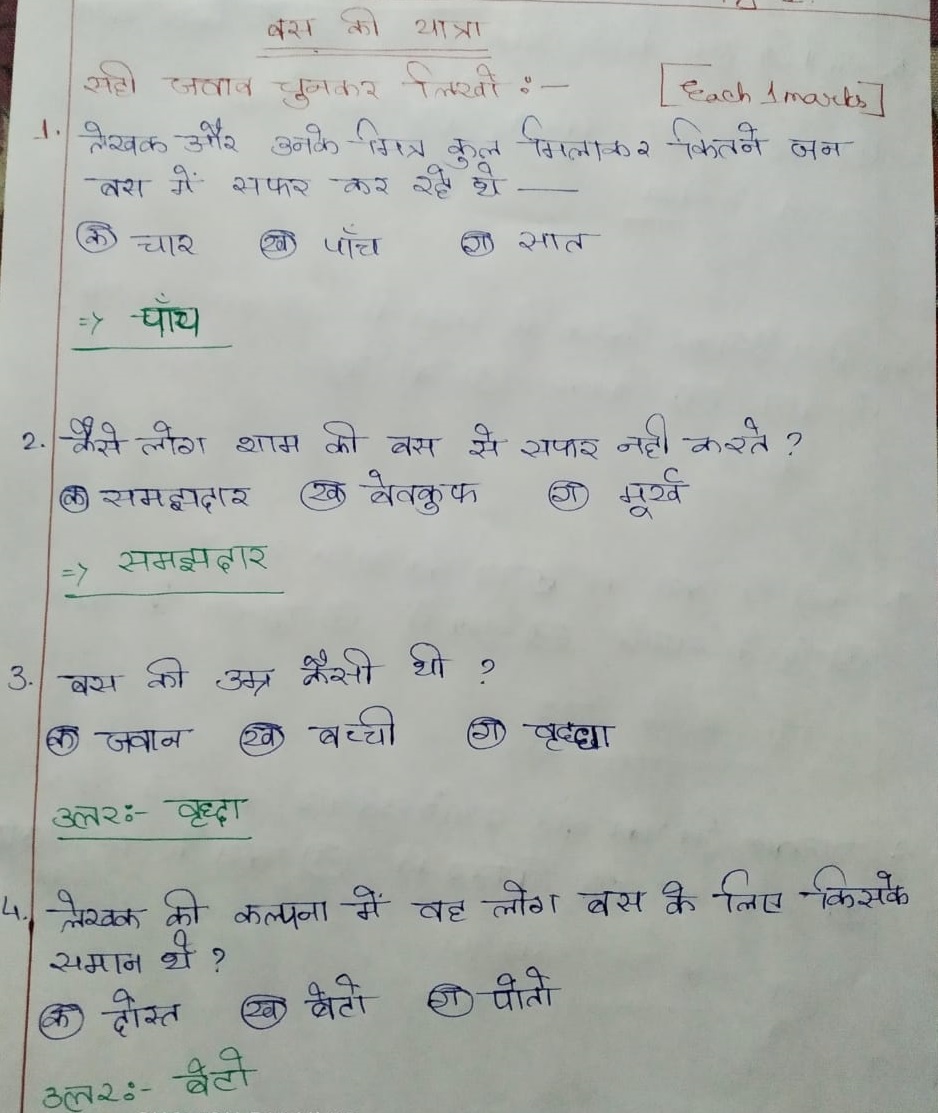 बस की यात्रा
सही जवाब चुनकर लिखो :- [Each 1 marks]
1. लेखक और उनके मित्र कुल मिलाकर कितने जन
बस में सफर कर रहे थे —
(क) चार (ख) पाँच (ग) सात
=> पाँच
2. कैसे लोग शाम की बस से सफर नही करते ?
(क) समझदार (ख) बेवकुफ (ग) मूर्ख
=> समझदार
3. बस की उम्र कैसी थी ?
(क) जवान (ख) बच्ची (ग) वृद्धा
उत्तर :- वृद्धा
4. लेखक की कल्पना में वह लोग बस के लिए किसके
समान थे ?
(क) दोस्त (ख) बेटो (ग) पोतो
उत्तर :- बेटो